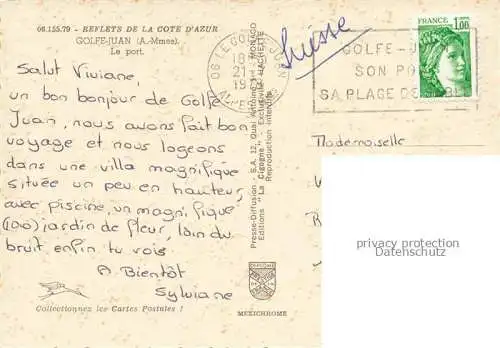 06.155.79 - REFLETS DE LA COTE D'AZUR
GOLFE-JUAN (A.-Mmes).
Le port.
Salut Viviane,
un bon bonjour de Golfe
Juan, nous avons fait bon
voyage et nous logeons
dans une villa magnifique
située un peu en hauteur,
avec piscine, un magnifique
(100) jardin de fleur, loin du
bruit enfin tu vois.
A Bientôt
Sylviane
Collectionnez les Cartes Postales !
MEXICHROME
Presse-Diffusion - S.A. 12, Quai Antoine 1er - MONACO
Editions "La Cigogne" - Exclusivité HACHETTE
Reproduction interdite
Suisse
06 LE GOLFE JUAN
18
21
19
GOLFE-JUAN
SON PO
SA PLAGE DE
FRANCE
1,00
Mademoiselle
privacy protection
Datenschutz